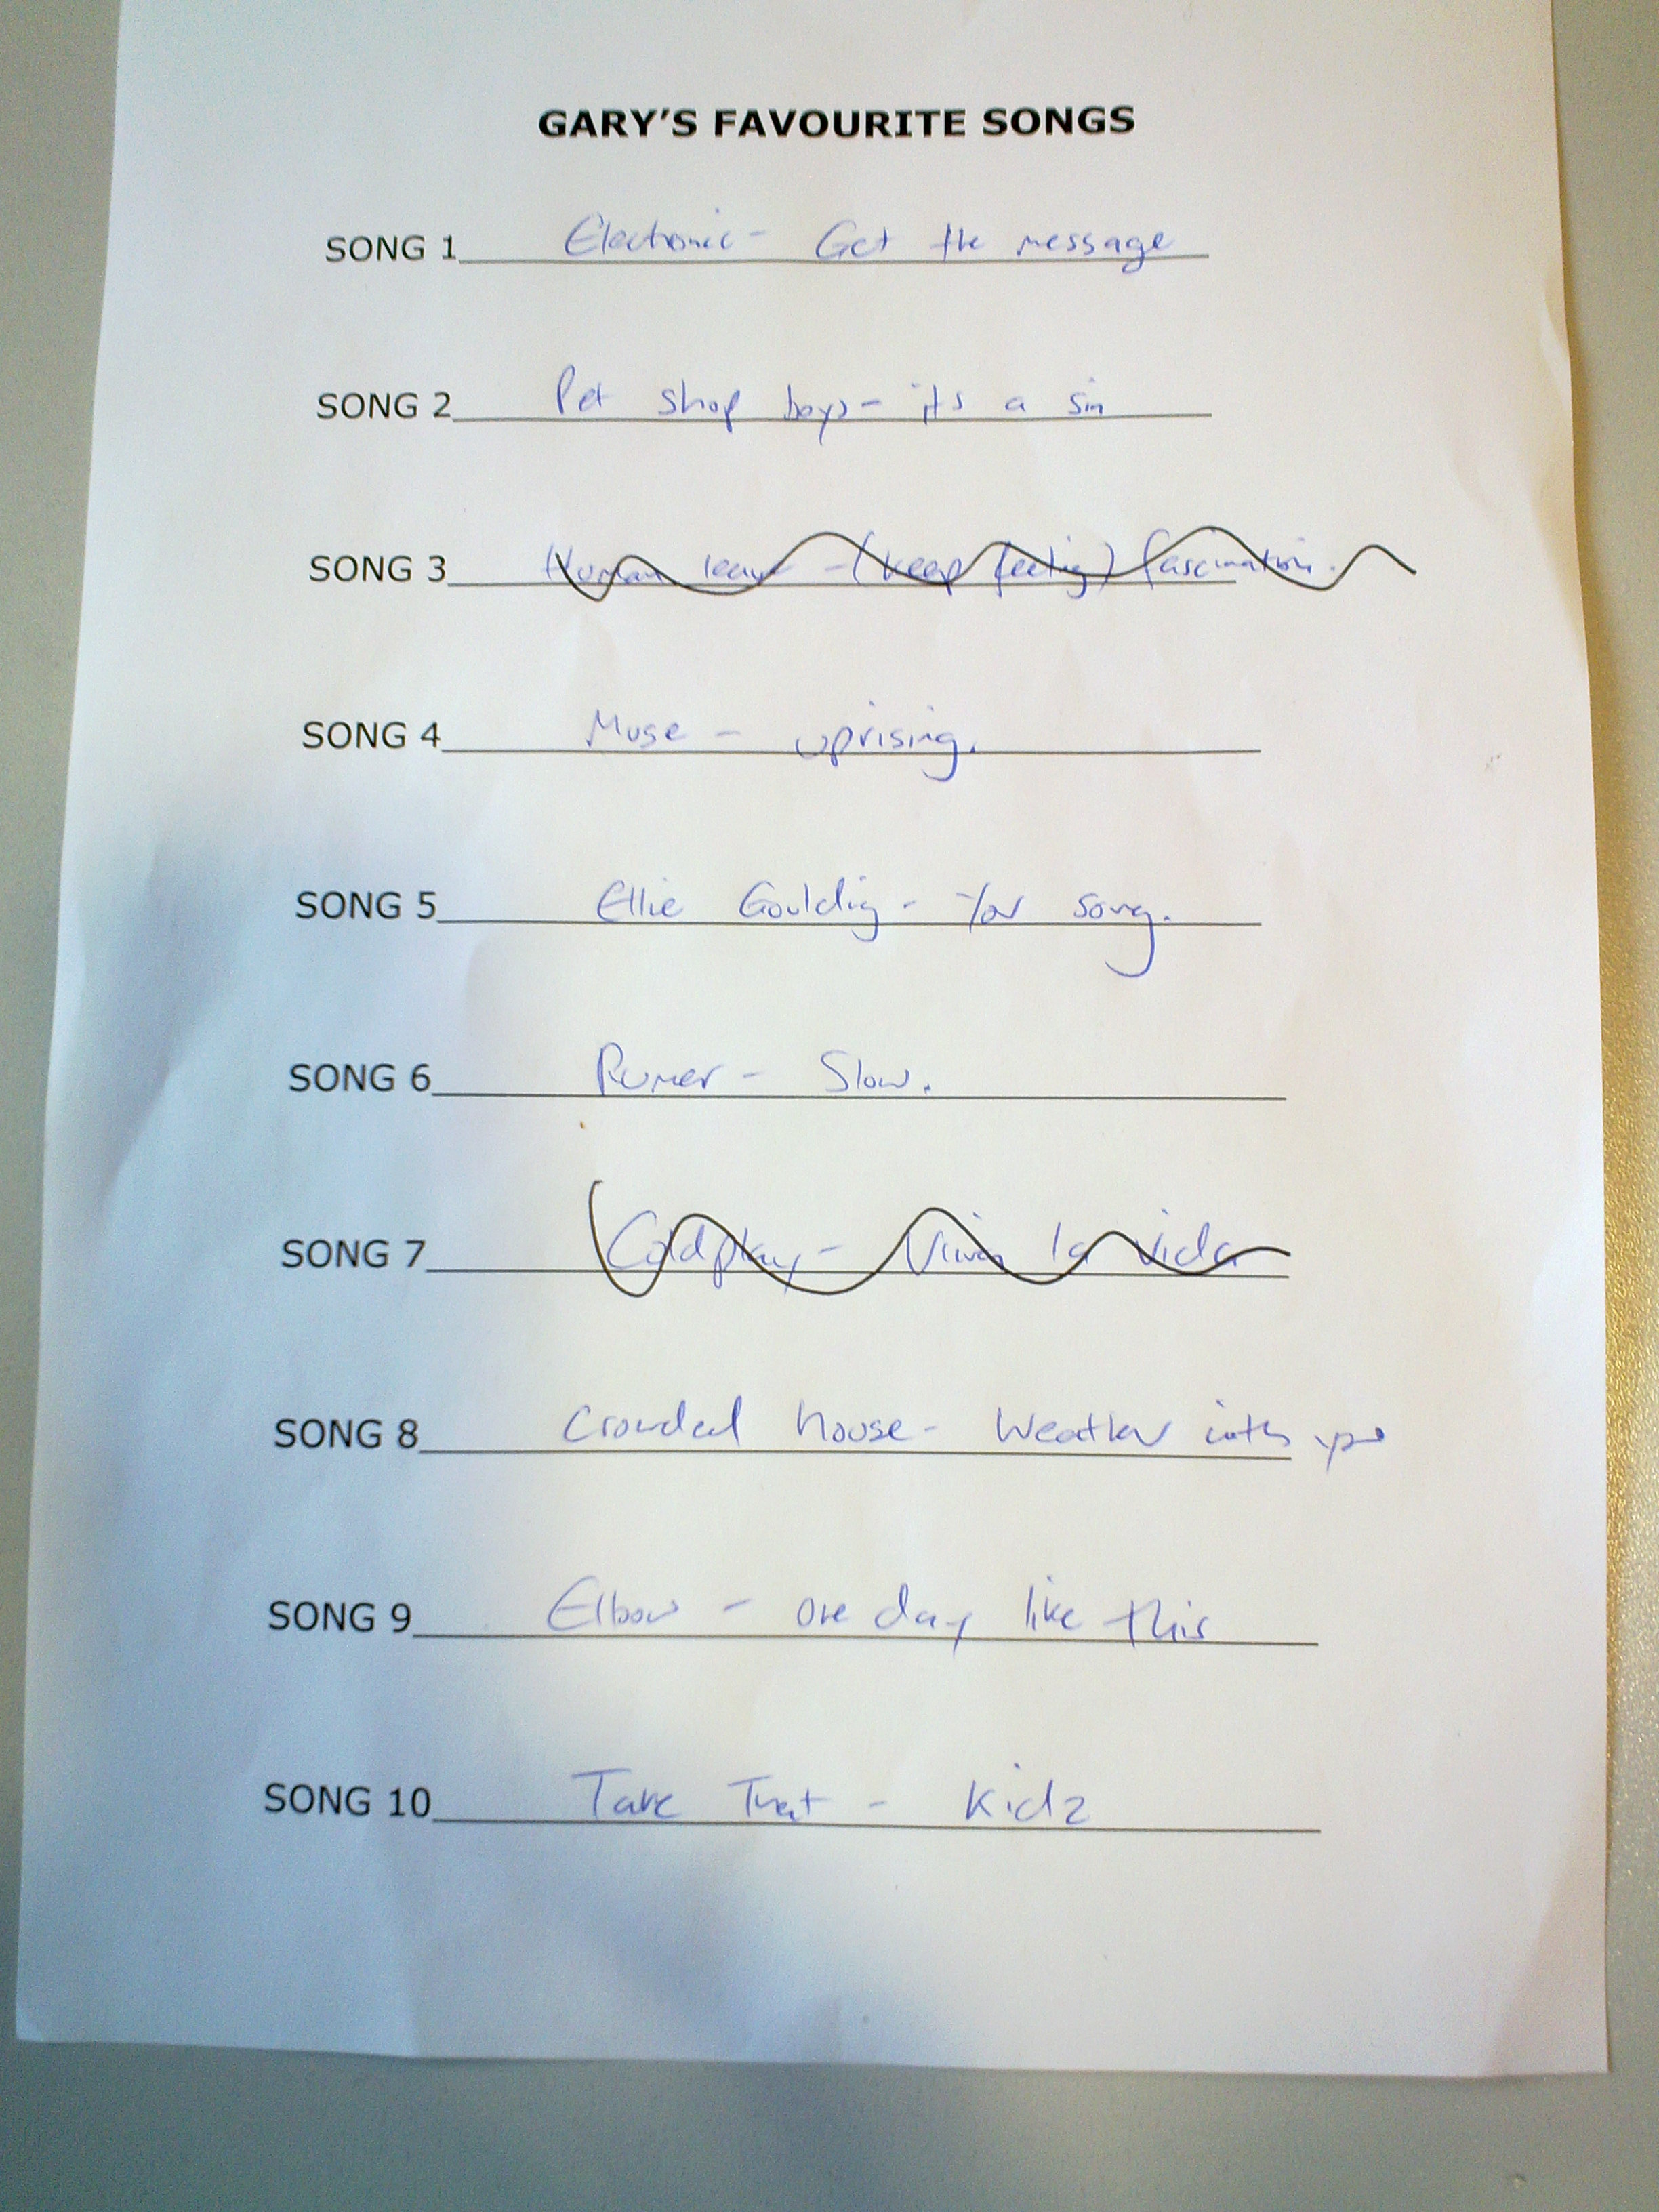 GARY'S FAVOURITE SONGS
SONG 1 Electronic - Get the message
SONG 2 Pet shop boys - its a sin
SONG 3 Human league - (keep feeling) fascination.
SONG 4 Muse - uprising.
SONG 5 Ellie Goulding - Your song.
SONG 6 Rumer - Slow.
SONG 7 Coldplay - Viva la vida
SONG 8 Crowded house - Weather with you
SONG 9 Elbow - one day like this
SONG 10 Take That - Kidz